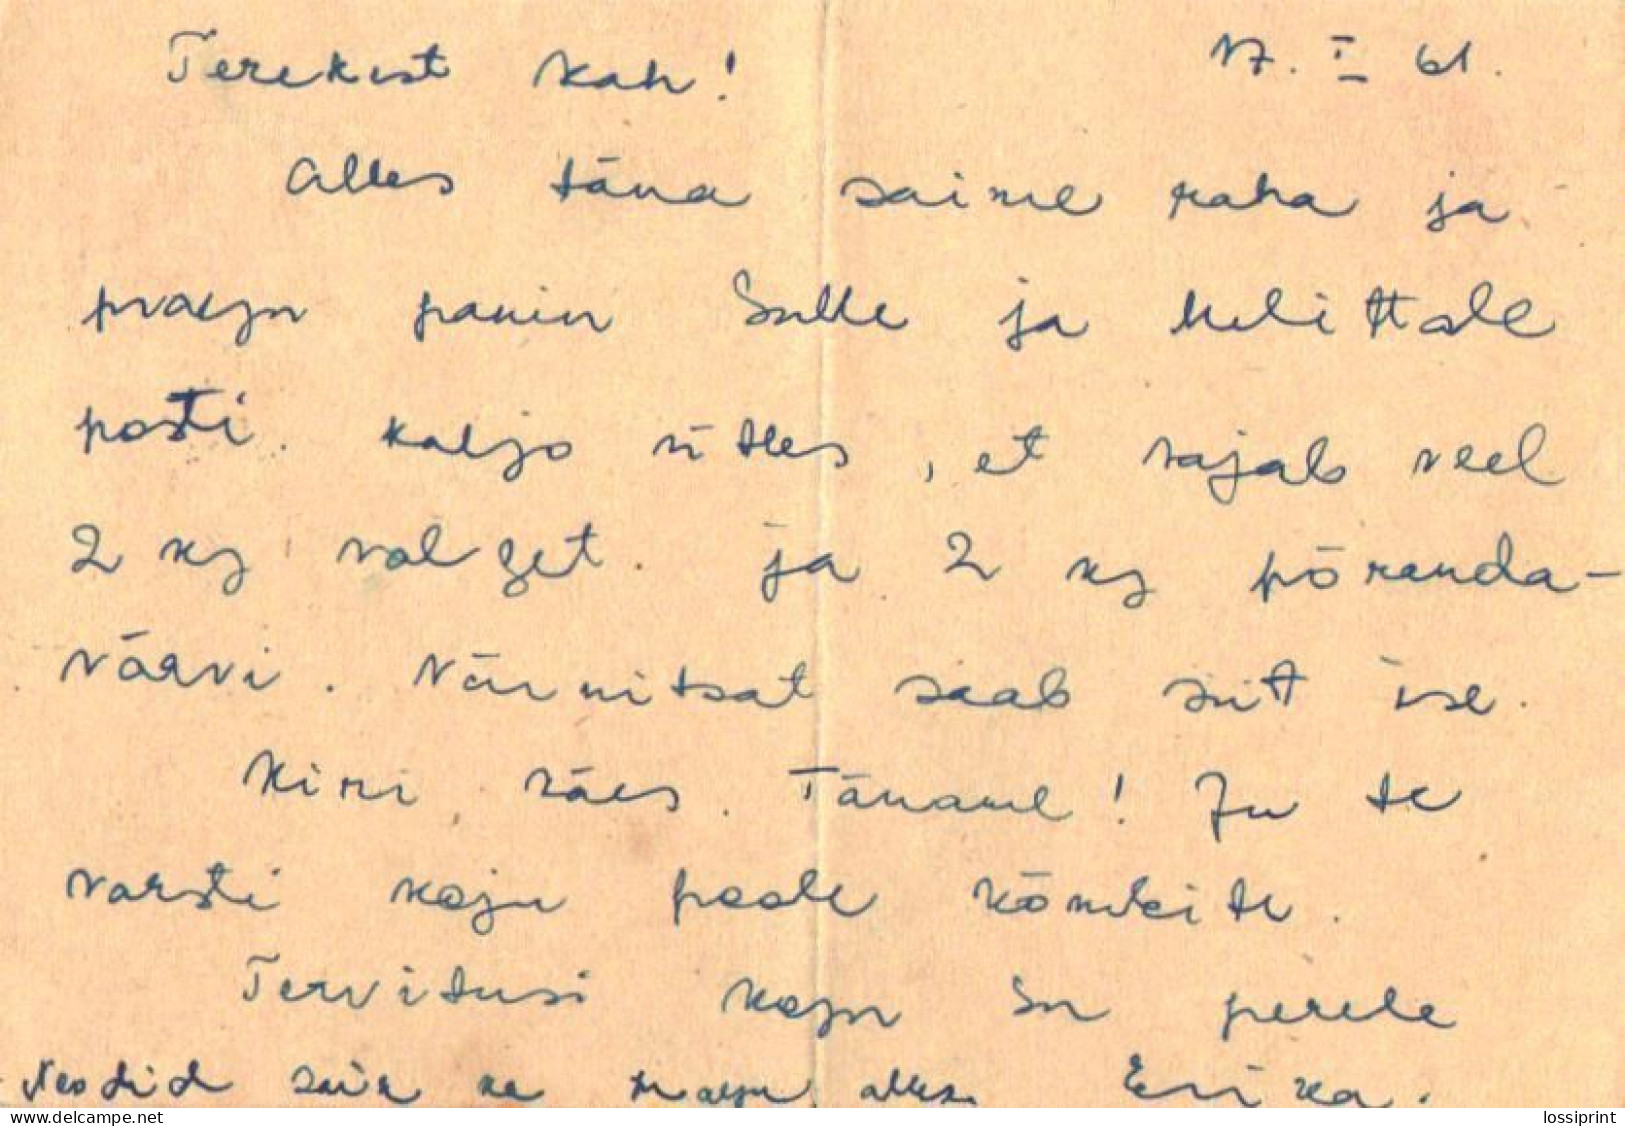 Terekest kah! 17. I 61.
Alles täna saime raha ja
praegu panin Sulle ja Melittale
posti. Kaljo ütles, et vajab veel
2 kg valget. ja 2 kg põranda-
värvi. Värnitsat saab siit ise.
Kiri käes. Täname! Ju te
varsti koju poole kõmbite.
Tervitusi koju Su perele
Needid sain ka praegu alles. Erika.
lossiprint.com
lossiprint